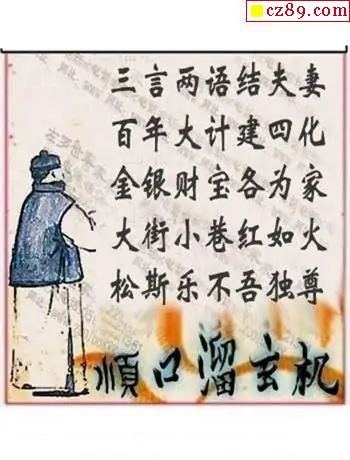 cz89.com
三言两语结夫妻
百年大计建四化
金银财宝各为家
大街小巷红如火
松斯乐不吾独尊
順口溜玄机